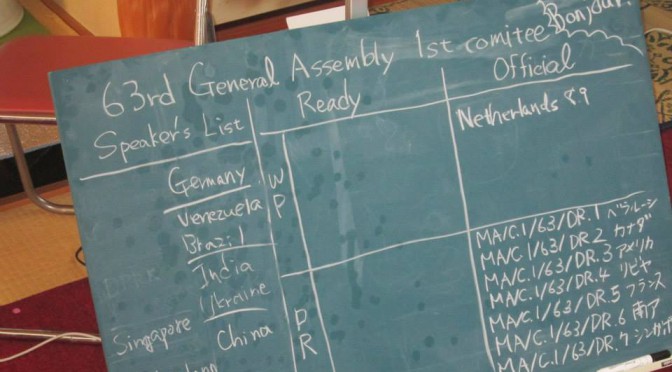 63rd General Assembly 1st comitee Bonjour!
Speaker's List
Ready
Official
Germany
Venezuela
Brazil
India
Ukraine
Singapore China
WP
DR
Netherlands 89
MA/C.1/63/DR.1 ベラルーシ
MA/C.1/63/DR.2 カナダ
MA/C.1/63/DR.3 アメリカ
MA/C.1/63/DR.4 リビヤ
MA/C.1/63/DR.5 フランス
MA/C.1/63/DR.6 南ア
MA/C.1/63/DR.7